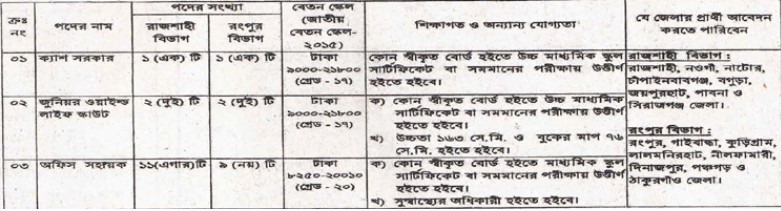 ক্রঃ নং
পদের নাম
পদের সংখ্যা
রাজশাহী বিভাগ
রংপুর বিভাগ
বেতন স্কেল
(জাতীয়
বেতন স্কেল-
২০১৫)
শিক্ষাগত ও অন্যান্য যোগ্যতা
যে জেলার প্রার্থী আবেদন
করতে পারিবেন
০১
ক্যাশ সরকার
১ (এক) টি
১ (এক) টি
টাকা
৯০০০-২১৮০০
(গ্রেড - ১৭)
কোন স্বীকৃত বোর্ড হইতে উচ্চ মাধ্যমিক স্কুল
সার্টিফিকেট বা সমমানের পরীক্ষায় উত্তীর্ণ
হইতে হইবে।
০২
জুনিয়র ওয়াইল্ড
লাইফ স্কাউট
২ (দুই) টি
২ (দুই) টি
টাকা
৯০০০-২১৮০০
(গ্রেড - ১৭)
ক) কোন স্বীকৃত বোর্ড হইতে উচ্চ মাধ্যমিক
সার্টিফিকেট বা সমমানের পরীক্ষায় উত্তীর্ণ
হইতে হইবে।
খ) উচ্চতা ১৬৩ সে.মি. ও বুকের মাপ ৭৬
সে.মি. হইতে হইবে।
০৩
অফিস সহায়ক
১১(এগার)টি
৯ (নয়) টি
টাকা
৮২৫০-২০০১০
(গ্রেড - ২০)
ক) কোন স্বীকৃত বোর্ড হইতে মাধ্যমিক স্কুল
সার্টিফিকেট বা সমমানের পরীক্ষায় উত্তীর্ণ
হইতে হইবে।
খ) সুস্বাস্থ্যের অধিকারী হইতে হইবে।
রাজশাহী বিভাগ :
রাজশাহী, নওগাঁ, নাটোর,
চাঁপাইনবাবগঞ্জ, বগুড়া,
জয়পুরহাট, পাবনা ও
সিরাজগঞ্জ জেলা।
রংপুর বিভাগ :
রংপুর, গাইবান্ধা, কুড়িগ্রাম,
লালমনিরহাট, নীলফামারী,
দিনাজপুর, পঞ্চগড় ও
ঠাকুরগাঁও জেলা।